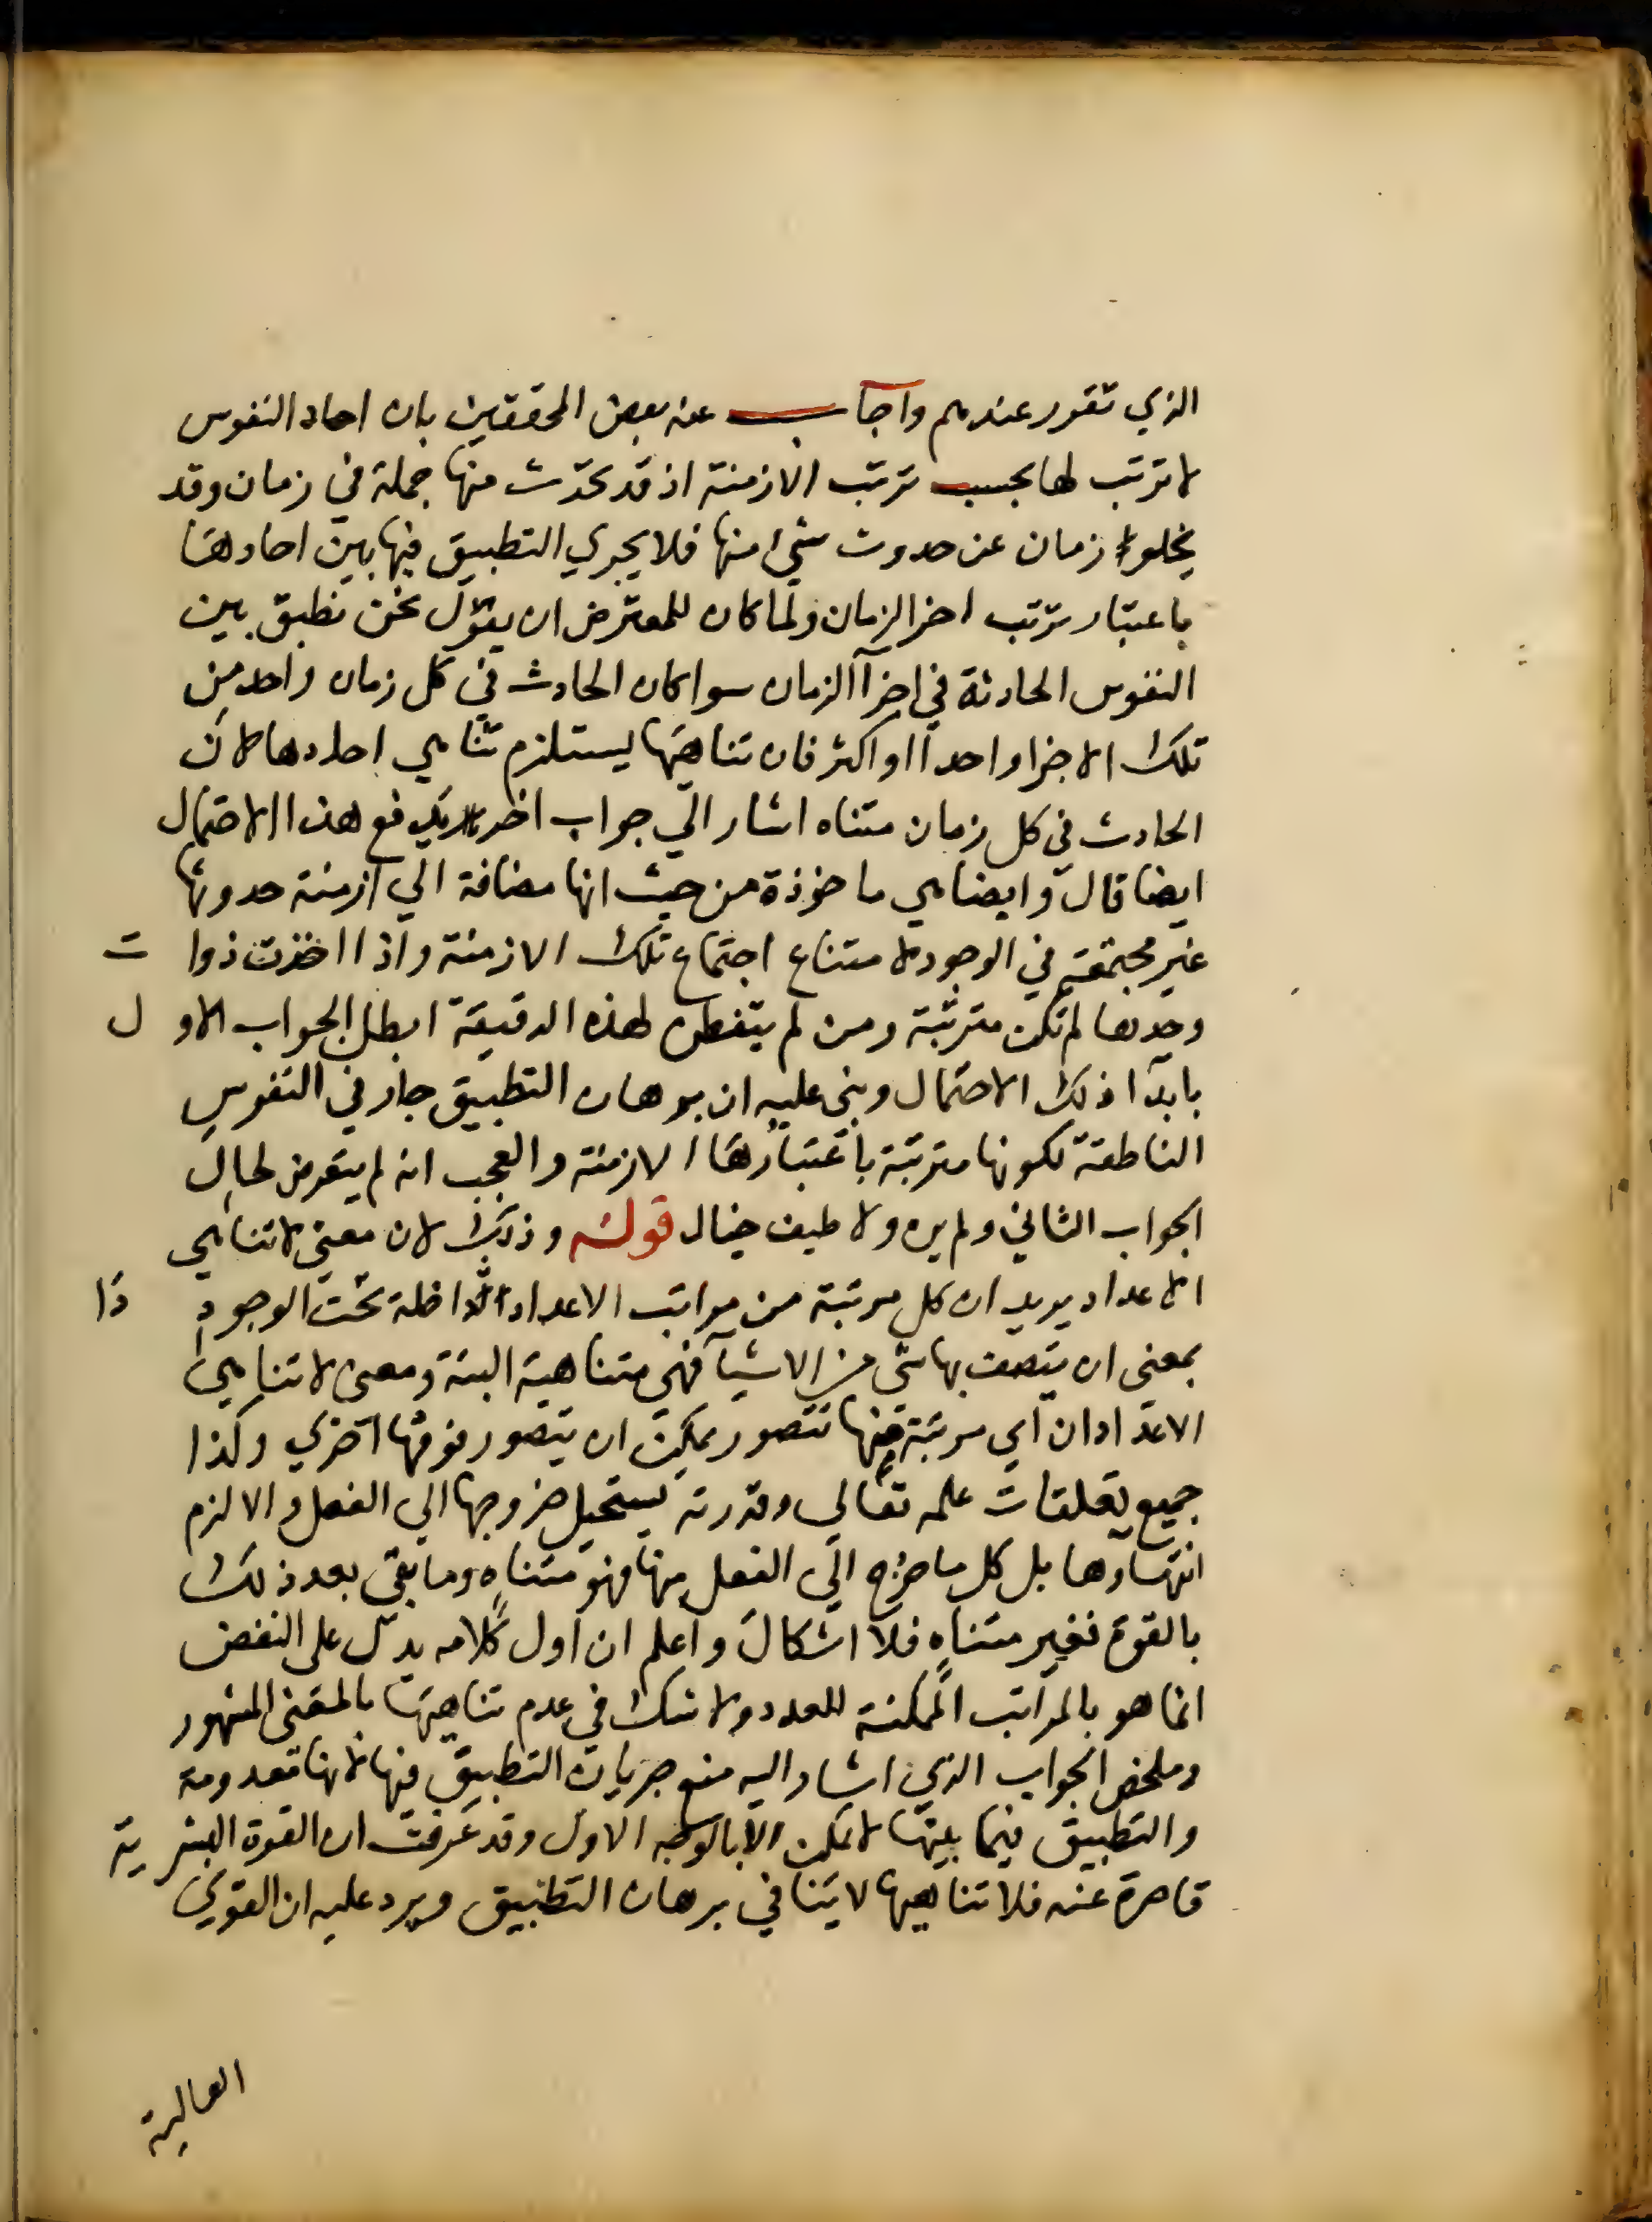 الذي تقرر عندهم واجاب عنه بعض المحققين بان احاد النفوس
لا ترتب لها بحسب ترتب الازمنة اذ قد تحدث منها جملة في زمان وقد
يخلو زمان عن حدوث شيء منها فلا يجري التطبيق فيها بين احادها
باعتبار ترتب اجزا الزمان ولما كان للمعترض ان يقول نحن نطبق بين
النفوس الحادثة في اجزآ الزمان سوا كان الحادث في كل زمان واحد من
تلك الاجزا واحدا او اكثر فان تناهيها يستلزم تناهي احادها لان
الحادث في كل زمان متناه اشار الي جواب اخر يدفع هذا الاحتمال
ايضا قال وايضا هي ماخوذة من حيث انها مضافة الي ازمنة حدوثها
غير مجتمعة في الوجود لامتناع اجتماع تلك الازمنة واذا اخذت ذوا ت
وحدها لم تكن مترتبة ومن لم يتفطن لهذه الدقيقة ابطل الجواب الاو ل
بابدآ ذلك الاحتمال وبنى عليه ان برهان التطبيق جار في النفوس
الناطقة لكونها مترتبة باعتبارها الازمنة والعجب انه لم يتعرض لحال
الجواب الثاني ولم يره ولا طيف خيال قوله وذلك لان معنى لا تناهي
الاعداد يريد ان كل مرتبة من مراتب الاعداد الداخلة تحت الوجود ذا
بمعنى ان يتصف بها شي من الاشيآ فهي متناهية البتة ومعنى لا تناهي
الاعداد ان اي مرتبة منها تتصور يمكن ان يتصور فوقها اخري وكذا
جميع تعلقات علمه تعالي وقدرته يستحيل خروجها الي الفعل والا لزم
انتهاوها بل كل ما خرج الي الفعل منها فهو متناه وما بقى بعد ذلك
بالقوة فغير متناه فلا اشكال واعلم ان اول كلامه يدل على النقض
انما هو بالمراتب الممكنة للعدد ولا شك في عدم تناهيها بالمعنى المشهور
وملخص الجواب الذي اشار اليه منع جريان التطبيق فيها لانها معدومة
والتطبيق فيما بينها لا يمكن الا بالوجه الاول وقد عرفت ان القوة البشر ية
قاصرة عنه فلا تناهيها لا ينافي برهان التطبيق ويرد عليه ان القوي
العالية